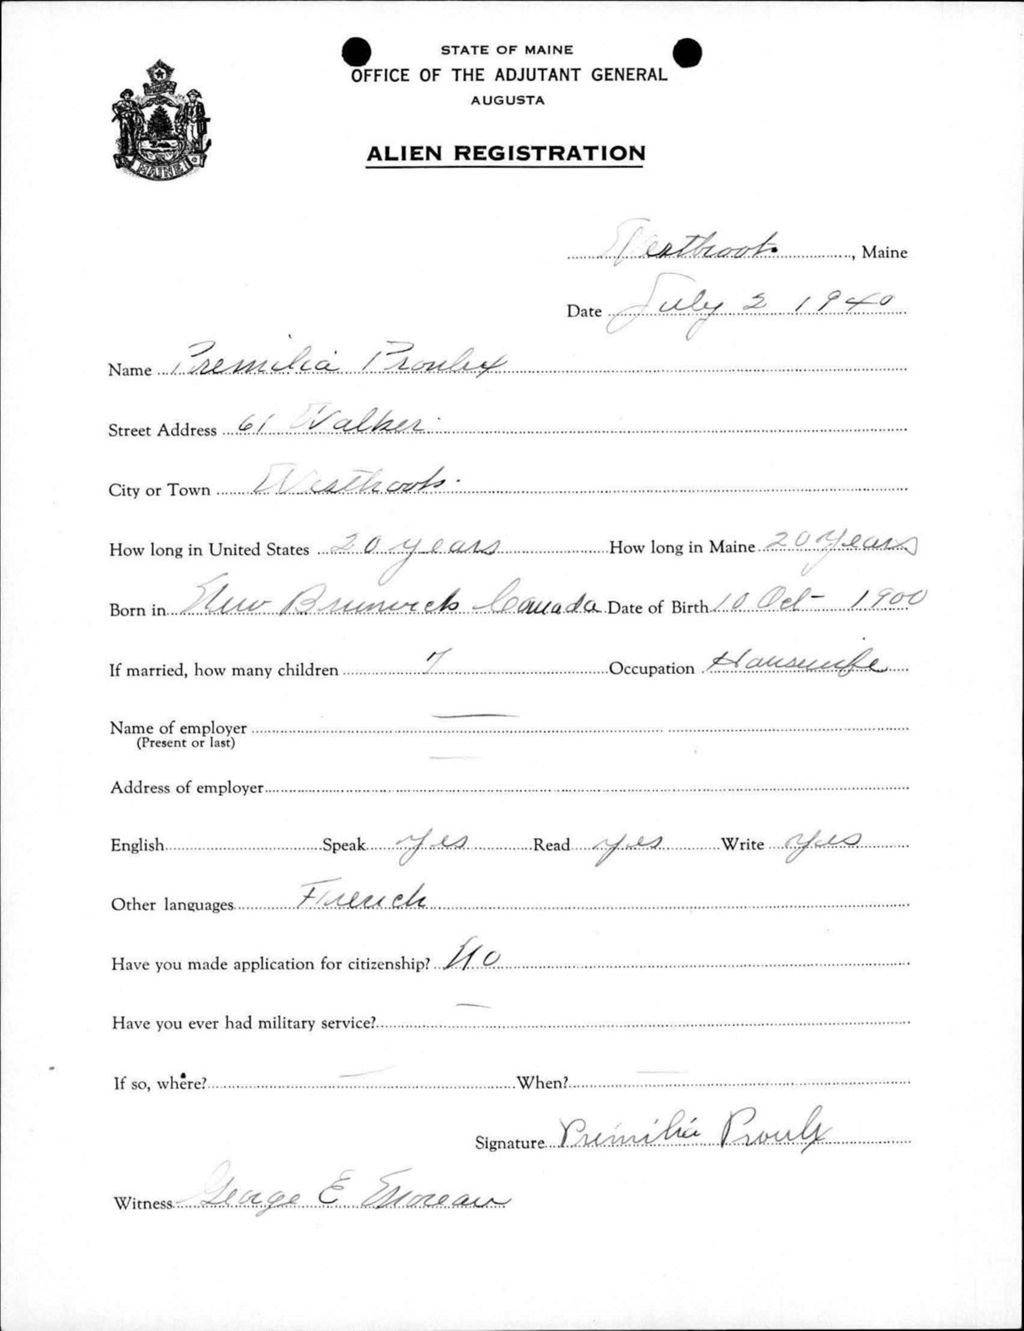 STATE OF MAINE
OFFICE OF THE ADJUTANT GENERAL
AUGUSTA
ALIEN REGISTRATION
MAINE
Westbrook, Maine
Date July 2 1940
Name Premilia Proulx
Street Address 61 Walker
City or Town Westbrook
How long in United States 20 years How long in Maine 20 Years
Born in New Brunswick Canada Date of Birth 10 Oct - 1900
If married, how many children 7 Occupation Housewife
Name of employer —
(Present or last)
Address of employer —
English Speak yes Read yes Write yes
Other languages French
Have you made application for citizenship? No
Have you ever had military service? —
If so, where? — When? —
Signature Premilia Proulx
Witness George E Moreau